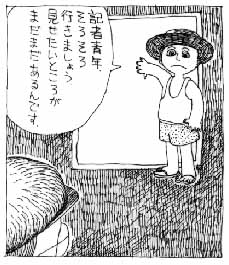 記者青年
そろそろ
行きましょう
見せたいところが
まだまだあるんです